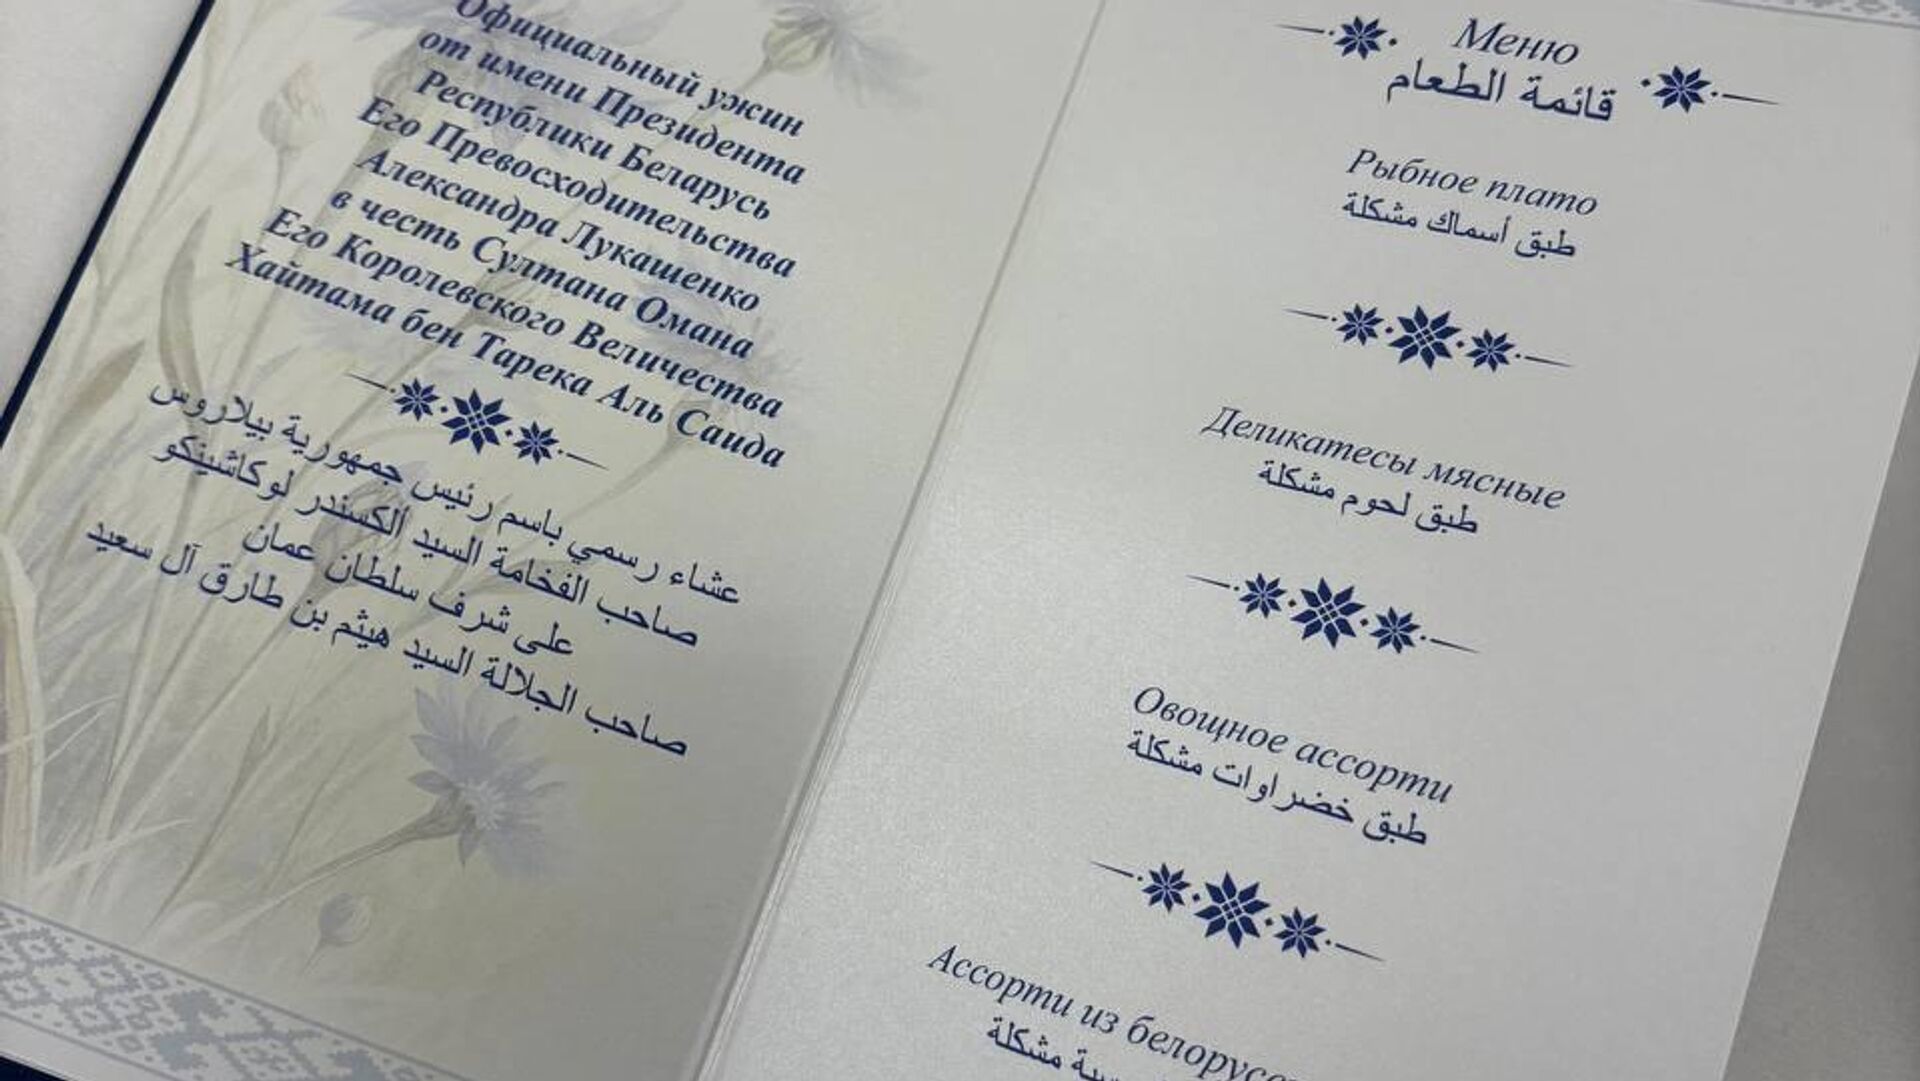 Официальный ужин
от имени Президента
Республики Беларусь
Его Превосходительства
Александра Лукашенко
в честь Султана Омана
Его Королевского Величества
Хайтама бен Тарека Аль Саида
عشاء رسمي باسم رئيس جمهورية بيلاروس
صاحب الفخامة السيد ألكسندر لوكاشينكو
على شرف سلطان عمان
صاحب الجلالة السيد هيثم بن طارق آل سعيد
Меню
قائمة الطعام
Рыбное плато
طبق أسماك مشكلة
Деликатесы мясные
طبق لحوم مشكلة
Овощное ассорти
طبق خضراوات مشكلة
Ассорти из
مشكلة